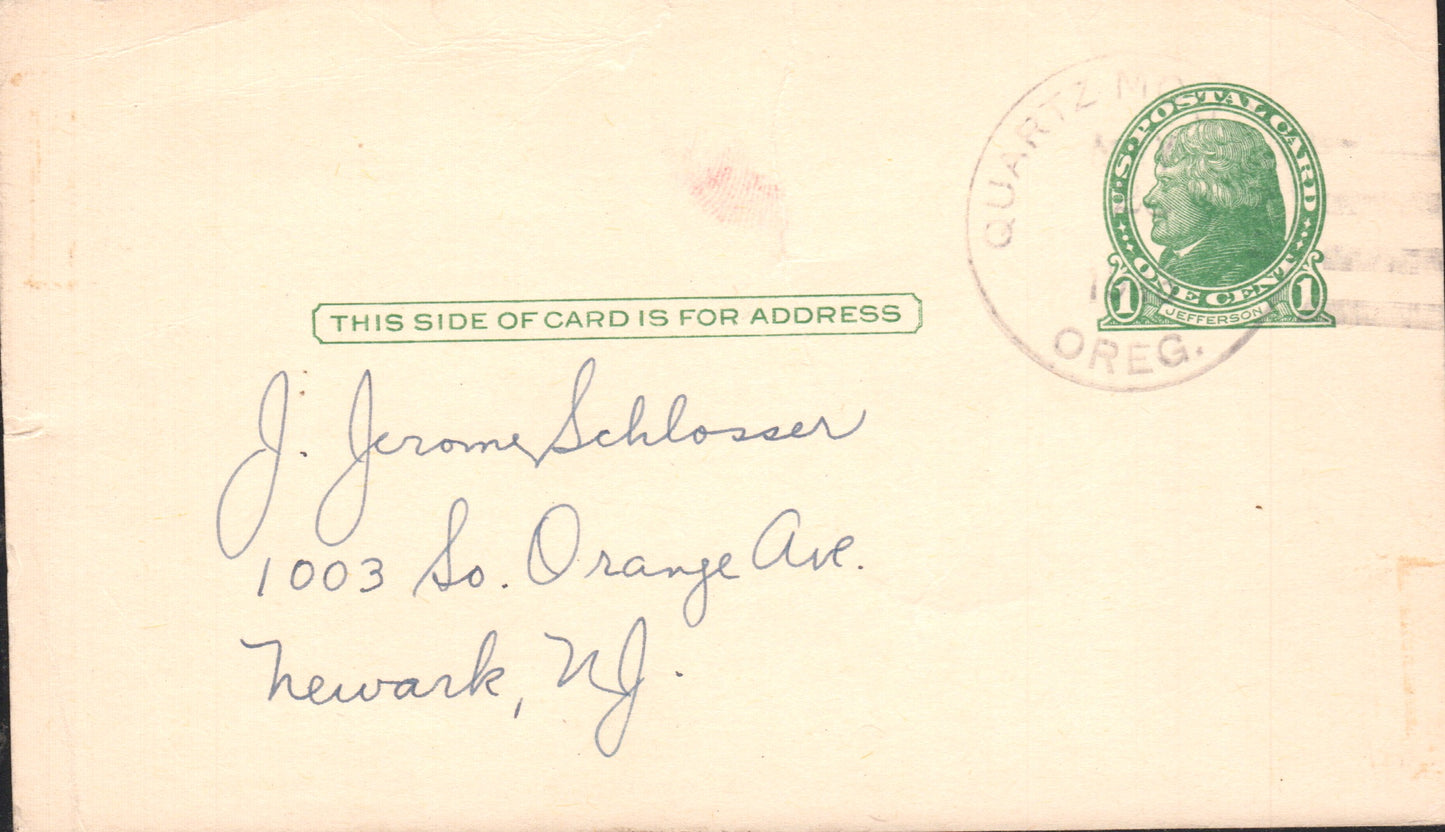 QUARTZ
OREG.
U.S. POSTAL CARD
ONE CENT
1 1
JEFFERSON
THIS SIDE OF CARD IS FOR ADDRESS
J. Jerome Schlosser
1003 So. Orange Ave.
Newark, NJ.